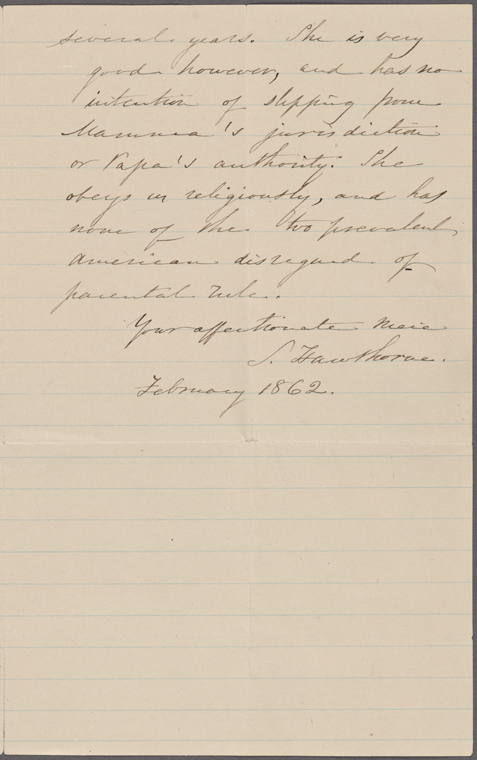 several years. She is very
good however, and has no
intention of slipping from
Mamma's jurisdiction
or Papa's authority. She
obeys us religiously, and has
none of the too prevalent
American disregard of
parental rule.
Your affectionate niece
S. Hawthorne.
February 1862.